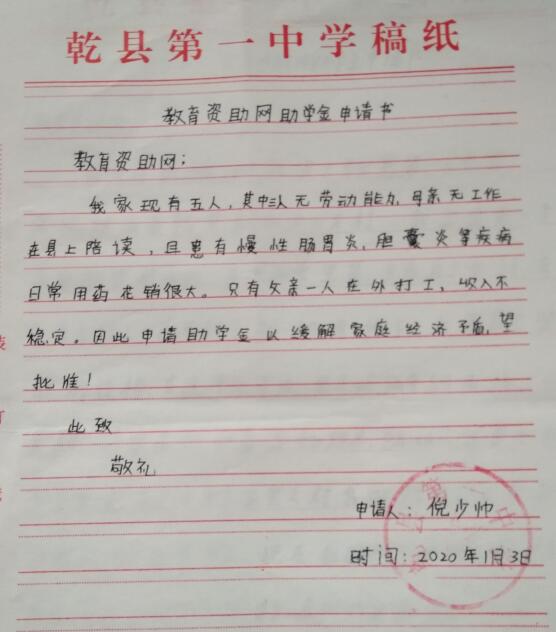 乾县第一中学稿纸
教育资助网助学金申请书
教育资助网:
我家现有五人,其中三人无劳动能力,母亲无工作
在县上陪读,且患有慢性肠胃炎,胆囊炎等疾病
日常用药花销很大。只有父亲一人在外打工,收入不
稳定。因此申请助学金以缓解家庭经济矛盾,望
批准!
此致
敬礼
申请人:倪少帅
时间:2020年1月3日
第一中